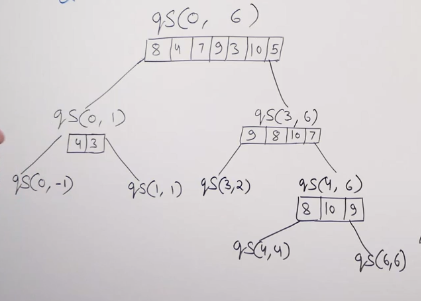 qS(0, 6)
8 4 7 9 3 10 5
qS(0, 1)
4 3
qS(3, 6)
9 8 10 7
qS(0, -1)
qS(1, 1)
qS(3, 2)
qS(4, 6)
8 10 9
qS(4,4)
qS(6,6)